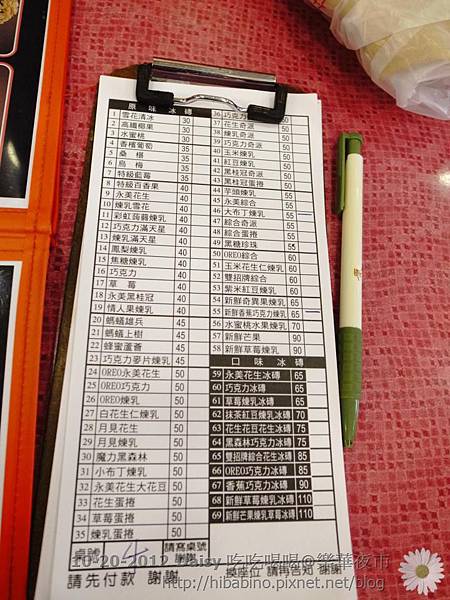 原味冰磚
1 雪花清冰 30
2 高纖椰果 30
3 水蜜桃 30
4 香檳葡萄 35
5 桑椹 35
6 烏梅 35
7 特級藍莓 35
8 特級百香果 40
9 永美花生 40
10 煉乳雪花 40
11 彩虹蒟蒻煉乳 40
12 巧克力滿天星 40
13 煉乳滿天星 40
14 鳳梨煉乳 40
15 焦糖煉乳 40
16 巧克力 40
17 草莓 40
18 永美黑桂冠 40
19 情人果煉乳 40
20 螞蟻雄兵 45
21 螞蟻上樹 45
22 蜂蜜蘆薈 45
23 巧克力麥片煉乳 45
24 OREO永美花生 50
25 OREO巧克力 50
26 OREO煉乳 50
27 白花生仁煉乳 50
28 月見花生 50
29 月見煉乳 50
30 魔力黑森林 50
31 小布丁煉乳 50
32 永美花生大花豆 50
33 花生蛋捲 50
34 草莓蛋捲 50
35 煉乳蛋捲 50
37 花生奇派 50
38 煉乳奇派 50
39 巧克力奇派 50
40 玉米煉乳 50
41 紅豆煉乳 50
42 黑桂冠奇派 50
43 黑桂冠蛋捲 50
44 芋頭煉乳 55
45 永美綜合 55
46 大布丁煉乳 55
47 綜合奇派 55
48 綜合蛋捲 55
49 黑糖珍珠 55
50 OREO綜合
51 玉米花生仁煉乳 60
52 雙招牌綜合 60
53 紫米紅豆煉乳 60
54 新鮮奇異果煉乳 65
55 新鮮香蕉巧克力煉乳 65
56 水蜜桃水果煉乳 70
57 新鮮芒果 90
58 新鮮草莓煉乳 90
口味冰磚
59 永美花生冰磚 65
60 巧克力冰磚 65
61 草莓煉乳冰磚 65
62 抹茶紅豆煉乳冰磚 70
63 花生花豆花生冰磚 75
64 黑森林巧克力冰磚 75
65 雙招牌綜合花生冰磚 85
66 OREO巧克力冰磚 85
67 香蕉巧克力冰磚 90
68 新鮮草莓煉乳冰磚 110
69 新鮮芒果煉乳草莓冰磚 110
桌號
請寫桌號 謝謝
請先付款 謝謝
換座位 請再告知 謝謝
10-20-2012 Daisy 吃吃喝喝@樂華夜市
http://hibabino.pixnet.net/blog